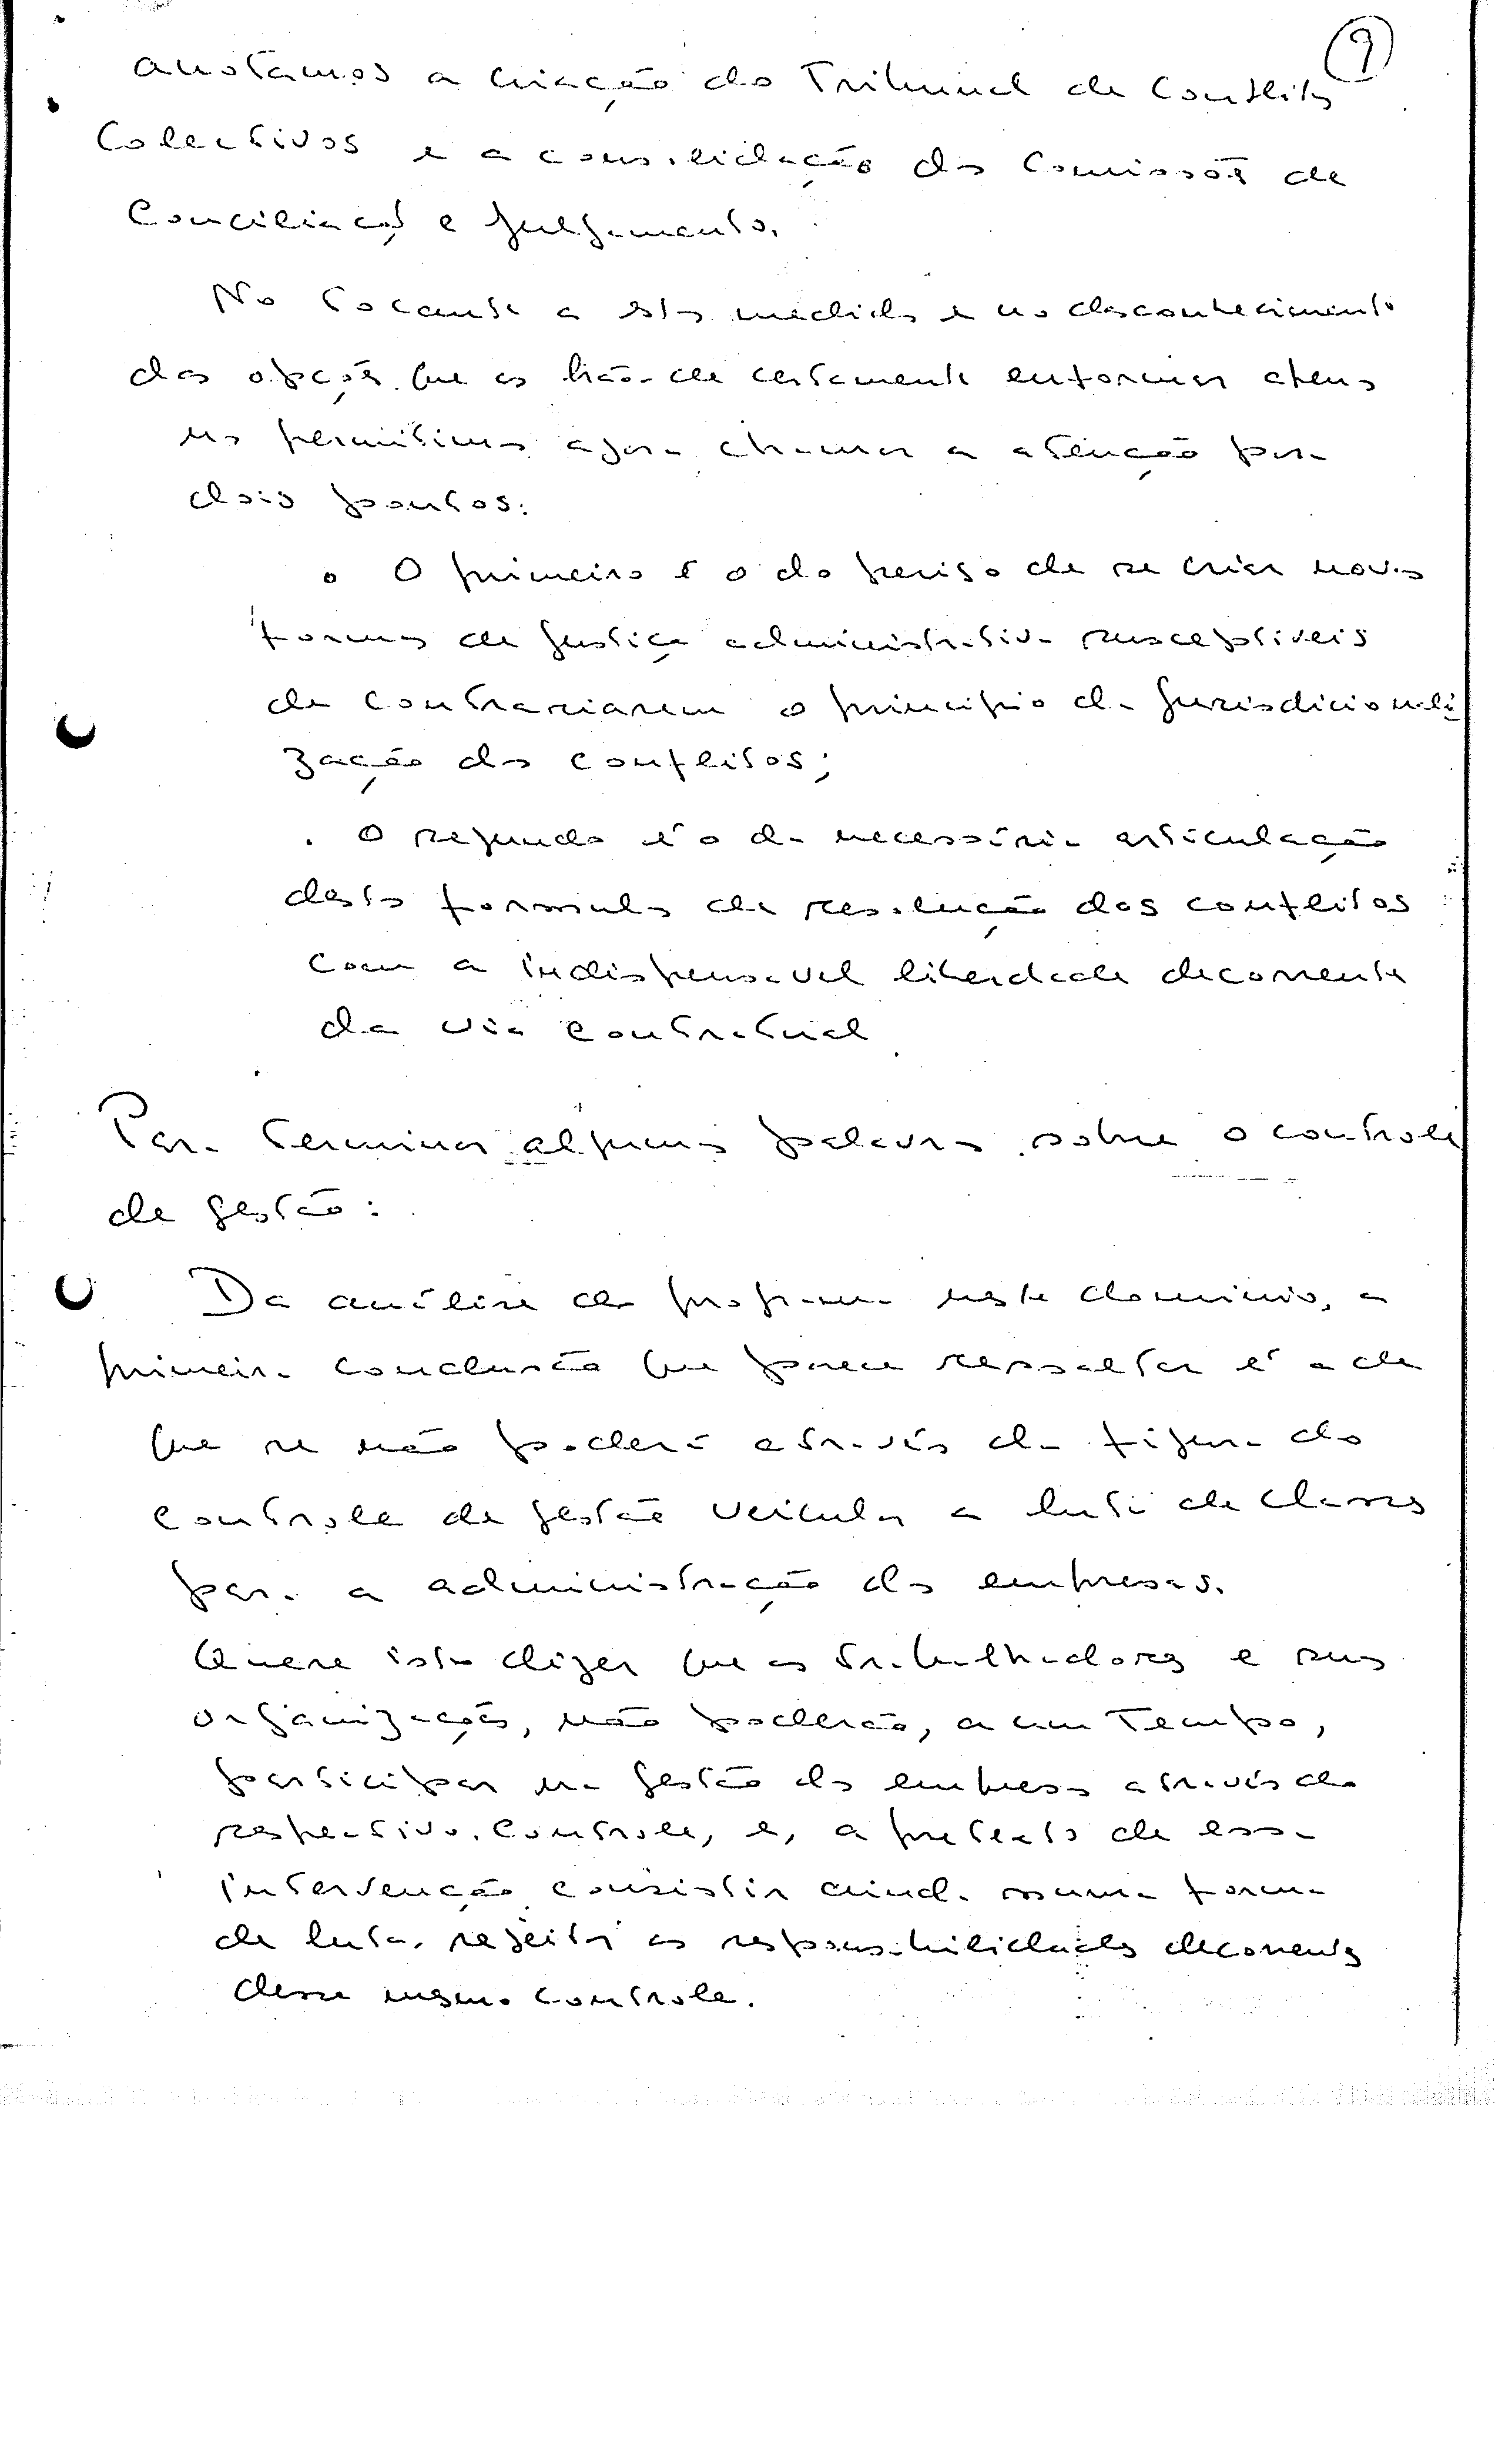 9
anotamos a criação do Tribunal de Conflitos
Colectivos e a consolidação das Comissões de
Conciliação e Julgamento.
No tocante a estas medidas e no desconhecimento
das opções que as hão-de certamente enformar apenas
nos permitimos agora chamar a atenção para
dois pontos:
• O primeiro é o do perigo de se criar novas
formas de justiça administrativa susceptíveis
de contrariarem o princípio da jurisdicionali
zação dos conflitos;
. O segundo é o da necessária articulação
destas formulas de resolução dos conflitos
com a indispensavel liberdade decorrente
da via contratual
Para terminar algumas palavras sobre o controle
de gestão:
Da análise do programa neste dominio, a
primeira conclusão que parece ressaltar é a de
que se não poderá através da figura do
controle de gestão veicular a luta de classes
para a administração das empresas.
Quere isto dizer que os trabalhadores e suas
organizações, não poderão, a um tempo,
participar na gestão das empresas através do
respectivo controle, e, a pretexto de essa
intervenção consistir ainda numa forma
de luta, rejeitar as responsabilidades decorrentes
desse mesmo controle.